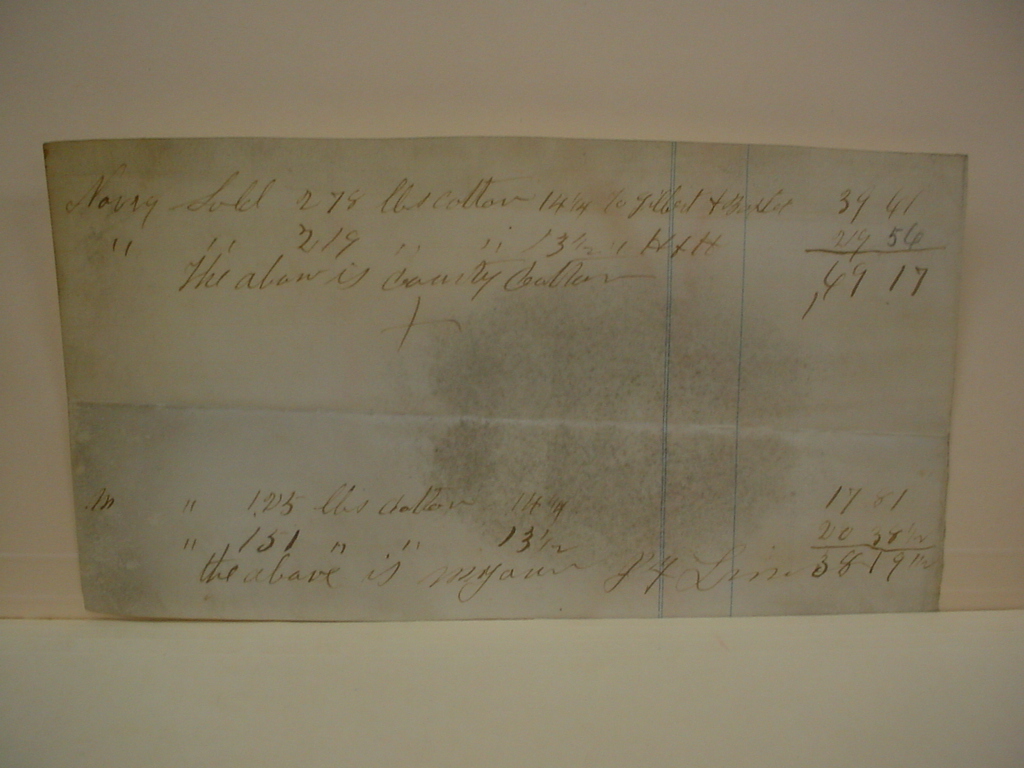 Sold 278 lbs cotton 14¼ to Gilbert & 39 61
" " 219 " " 13½ " H & H 29 56
the above is county cotton 69 17
" 125 lbs cotton 14¼ 17 81
" 151 " " 13½ 20 38½
the above is my own 38 19½